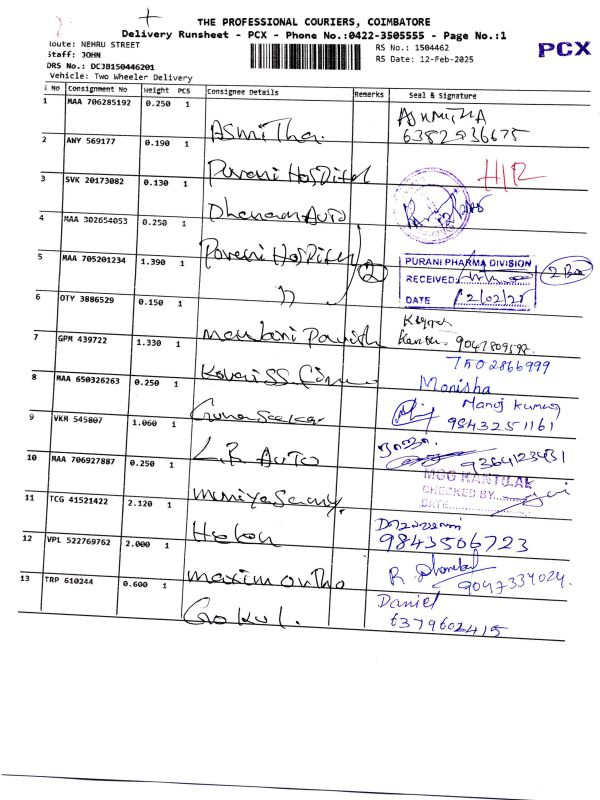 THE PROFESSIONAL COURIERS, COIMBATORE
Delivery Runsheet - PCX - Phone No.:0422-3505555 - Page No.:1
Route: NEHRU STREET
RS No.: 1504462
PCX
Staff: JOHN
RS Date: 12-Feb-2025
DRS No.: DCJB150446201
Vehicle: Two Wheeler Delivery
S No Consignment No Weight PCS Consignee Details Remarks Seal & Signature
1 MAA 706285192 0.250 1
Asmitha
6382936675
2 AWY 569177 0.190 1
Purani Hospital
H/R
3 SVK 20173082 0.130 1
Dhanam Auto
4 MAA 302654053 0.250 1
Purani Hospital
2
5 MAA 705201234 1.390 1
PURANI PHARMA DIVISION
RECEIVED
DATE 12/02/25
6 OTY 3886529 0.150 1
7 GPM 439722 1.330 1
7502866999
8 MAA 650326263 0.250 1
Monisha
Gunaseekar
Manoj Kumar
9843251161
9 VKM 545807 1.060 1
L.R AUTO
9364123431
10 MAA 706927887 0.250 1
CHECKED BY
DATE
11 TCG 41521422 2.120 1
9843506723
12 VPL 522769762 2.000 1
maxim ortho
9047334024.
13 TRP 610244 0.600 1
Gokul.
Daniel
6379602415